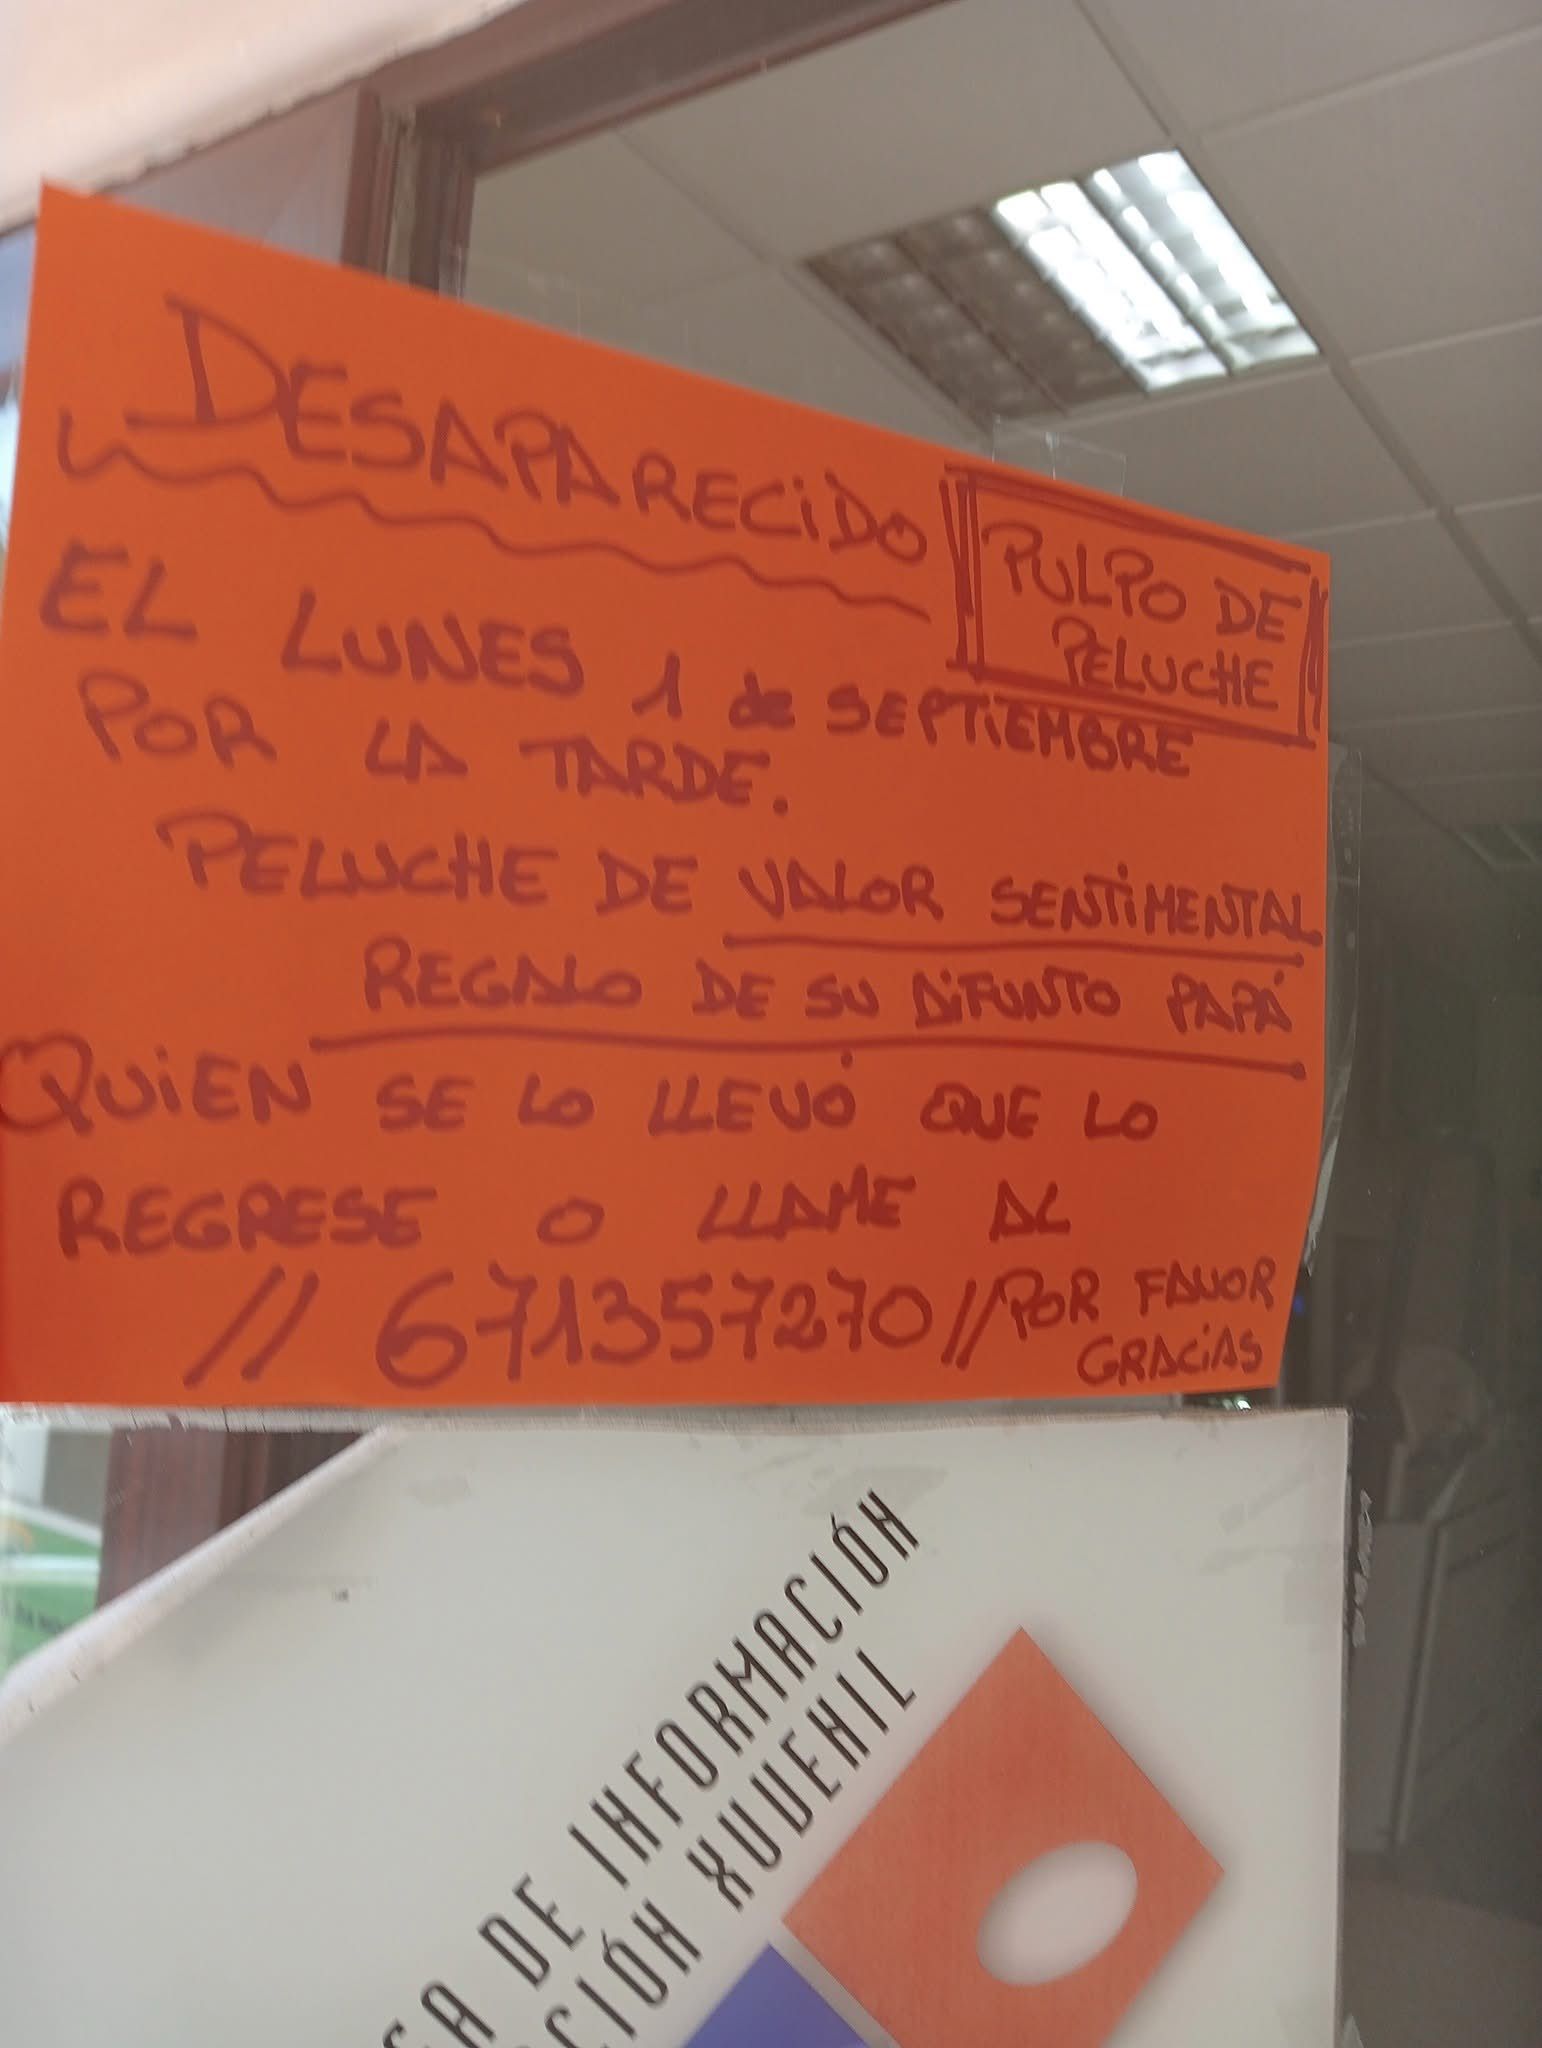 DESAPARECIDO
PULPO DE
PELUCHE
EL LUNES 1 de SEPTIEMBRE
POR LA TARDE.
PELUCHE DE VALOR SENTIMENTAL
REGALO DE SU DIFUNTO PAPÁ
QUiEN SE LO LLEVÓ QUE LO
REGRESE O LLAME AL
// 671357270 // POR FAVOR
GRACiAS
DE INFORMACIÓN
XUVENIL